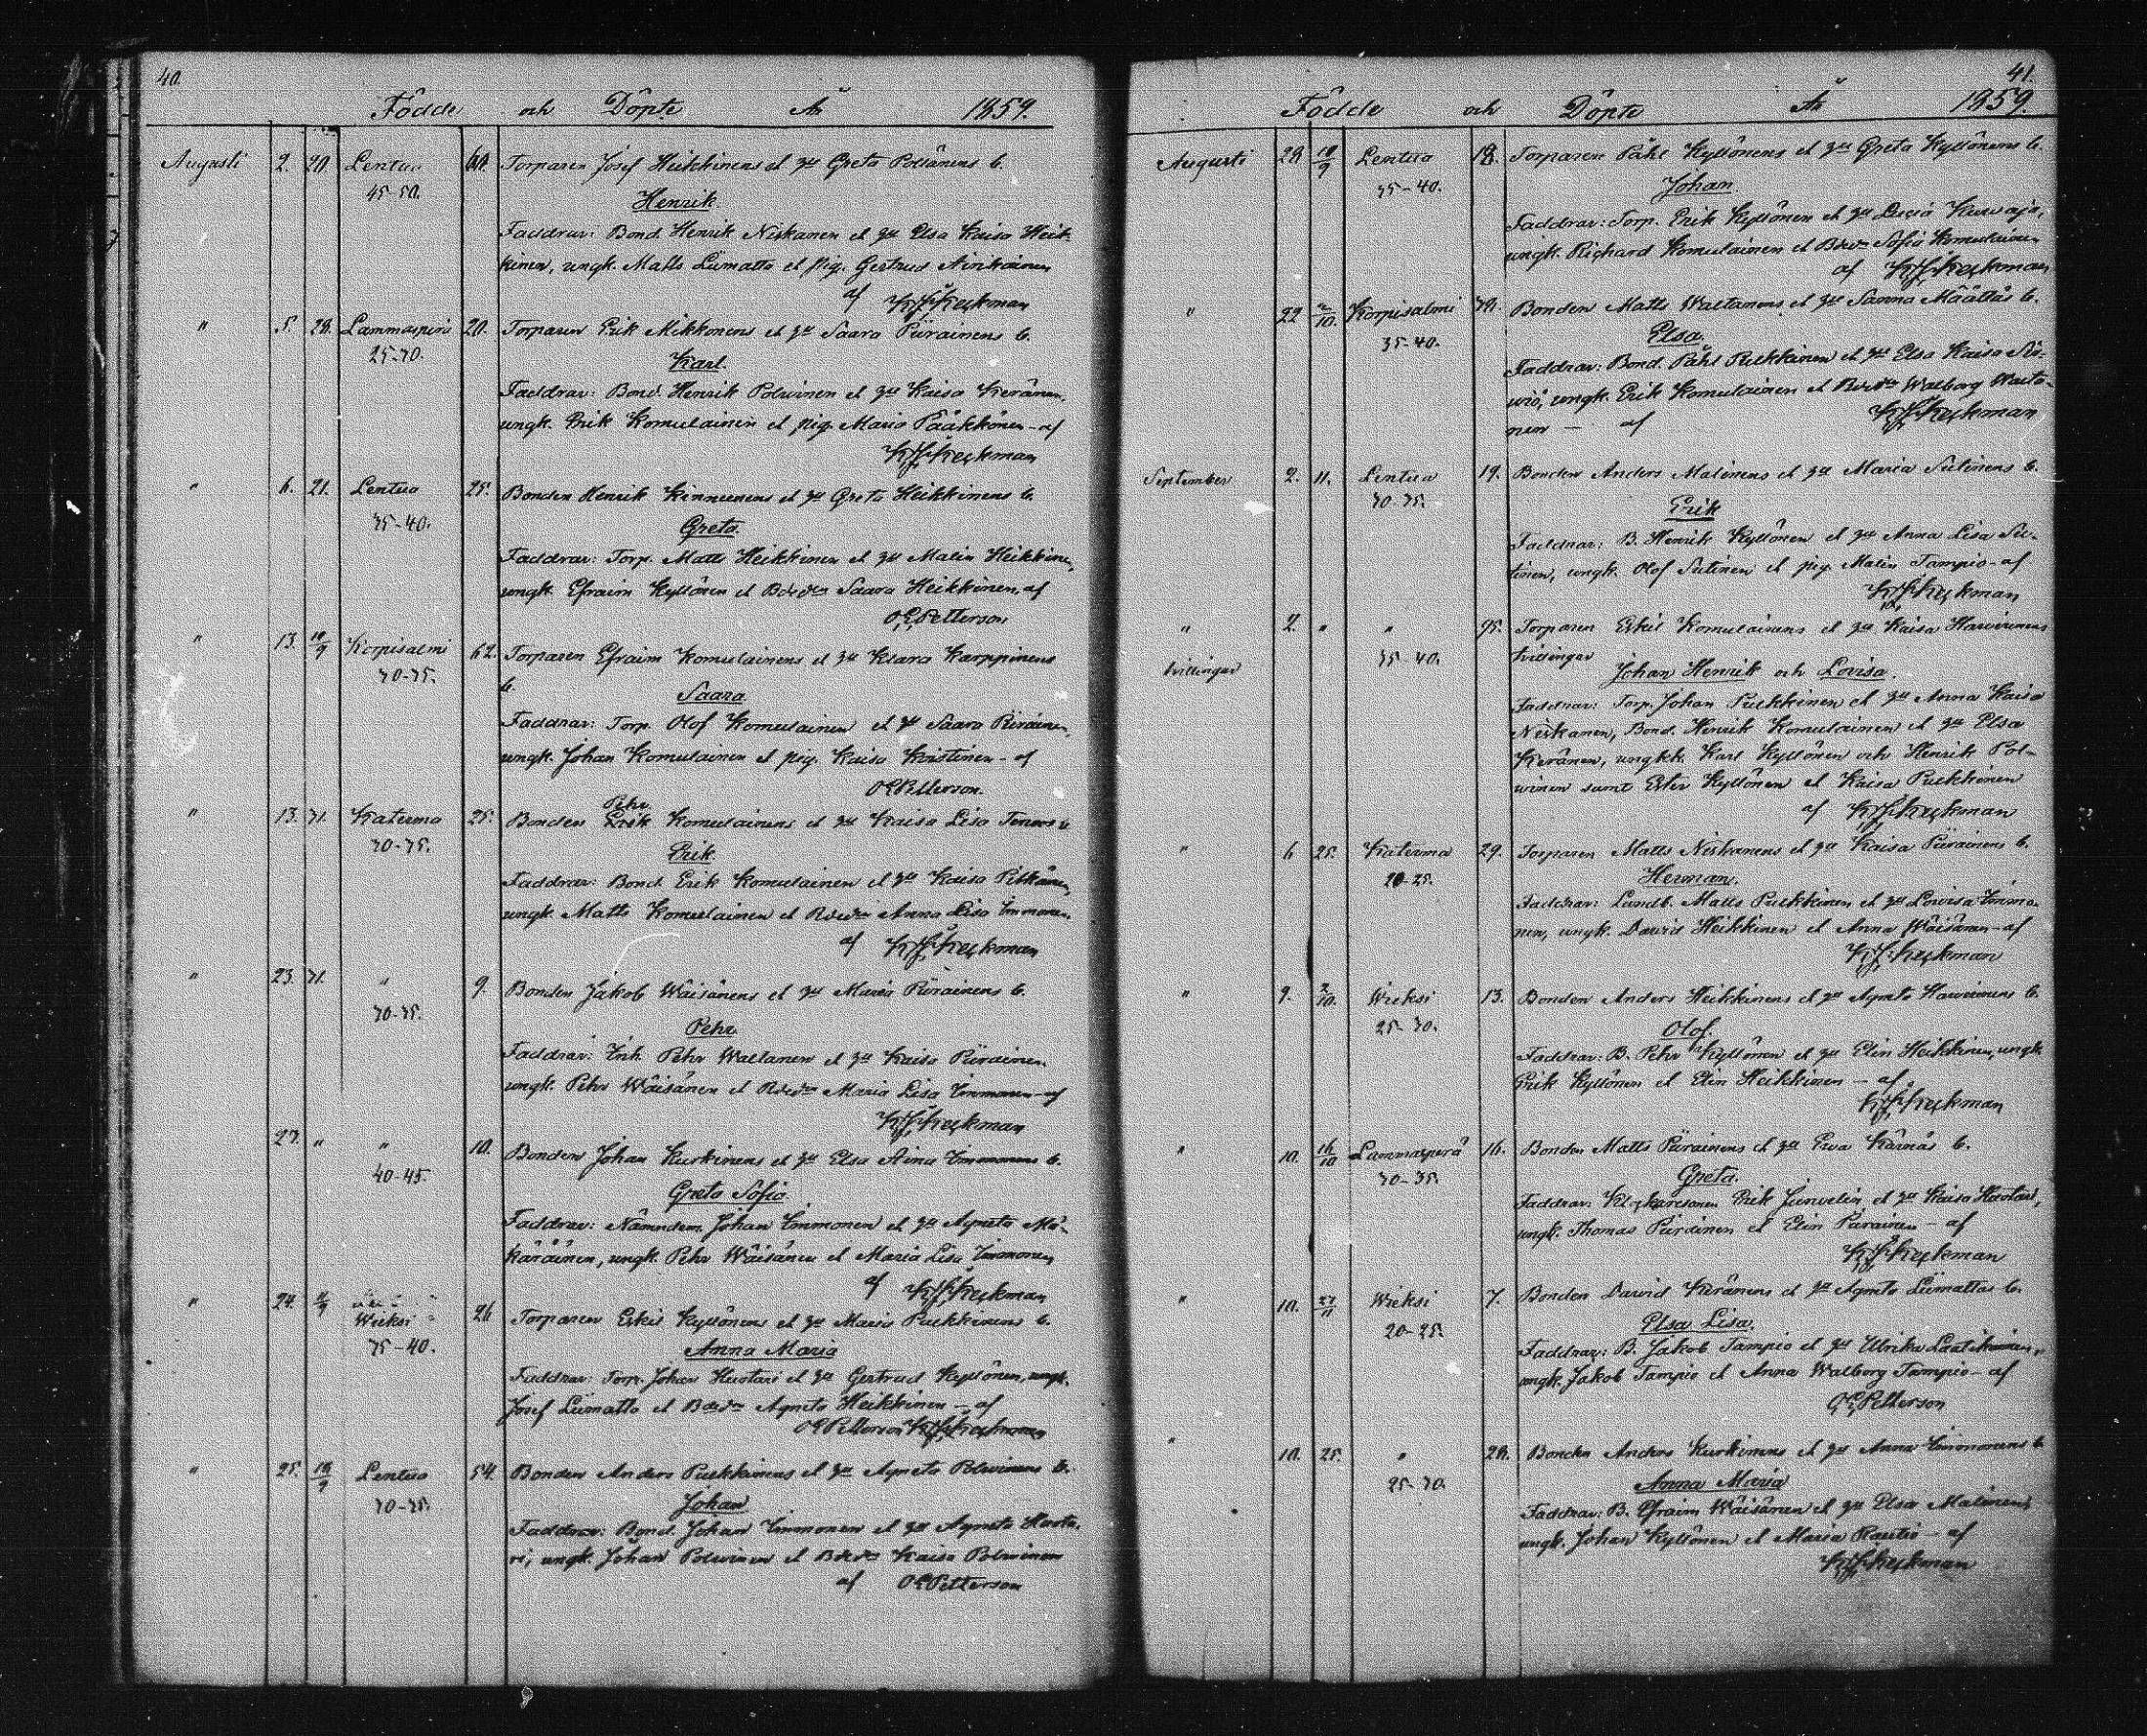 40.
Födde och Döpte År 1859.
Augusti 2. 20. Lentua 60. Torparen Josef Heikkinens et hu Greta Polvinens b.
45-50. Henrik
Faddrar: Bond. Henrik Niskanen et hu Elsa Kaisa Heik-
kinen, ungk. Matts Liimatta et pig. Gertrud
af Keckman
" 5. 28. Lammasperä 20. Torparen Erik Mikkonens et hu Saara Piirainens b.
25-30. Karl.
Faddrar: Bond. Henrik Polvinen et hu Kaisa Keränen,
ungk. Erik Komulainen et pig. Maria Pääkkönen - af
Keckman
" 6. 21. Lentua 25. Bonden Henrik Kinnunens et hu Greta Heikkinens b.
35-40. Greta.
Faddrar: Torp. Matts Heikkinen et hu Malin Heikkinen,
ungk. Efraim Kyllönen et Bdedr Saara Heikkinen, af
O.E. Petterson
" 13. 18/9 Korpisalmi 62. Torparen Efraim Komulainens et hu Klara Karppinens
30-35. b. Saara
Faddrar: Torp. Olof Komulainen et hu Saara Piirainen,
ungk. Johan Komulainen et pig. Kaisa Kristinen - af
O E Petterson.
Pehr
" 13. 31. Katerma 25. Bonden Erik Komulainens et hu Kaisa Lisa b
30-35. Erik
Faddrar: Bond. Erik Komulainen et hu Kaisa Pitkänen,
ungk. Matts Komulainen et Bdedr Anna Lisa Immonen.
af Keckman
" 23. 31. " 9. Bonden Jakob Wäisänens et hu Maria Piirainens b.
30-35. Pehr
Faddrar: Inh. Pehr Waltanen et hu Kaisa Piirainen.
ungk. Pehr Wäisänen et Bdedr Maria Lisa Immonen - af
Keckman
27. " " 10. Bonden Johan Kurkinens et hu Elsa Aina Immonens b.
40-45. Greta Sofia
Faddrar: Nämndem. Johan Immonen et hu Agneta Mä-
käräinen, ungk. Pehr Wäisänen et Maria Lisa Immonen
af Keckman
" 24. /9 Wieksi 26 Torparen Eskil Kyllönens et hu Maria Pulkkinens b.
35-40. Anna Maria
Faddrar: Torp. Johan Huotari et hu Gertrud Kyllönen, ungk.
Josef Liimatta et Bdedr Agneta Heikkinen - af
O E Petterson Keckman
" 25. 18/9 Lentua 54. Bonden Anders Pulkkinens et hu Agneta Polvinens b.
30-35. Johan
Faddrar: Bond. Johan Immonen et hu Agneta Huota-
ri, ungk. Johan Polvinen et Bdedr Kaisa Polvinen
af O E Petterson
41.
Födde och Döpte År 1859.
Augusti 28. 18/9 Lentua 18. Torparen Påhl Kyllönens et hu Greta Kyllönens b.
35-40. Johan.
Faddrar: Torp. Erik Kyllönen et hu Lucia
ungk. Richard Komulainen et Bdedr Sofia Komulainen
af Keckman
" 22 2/10. Korpisalmi 78. Bonden Matts Waltanens et hu Sanna Määttäs b.
35-40. Elsa.
Faddrar: Bond. Påhl Pulkkinen et hu Elsa Kaisa
ungk. Erik Komulainen et Bdedr Walborg Walta-
nen - af Keckman
September 2. 11. Lentua 19. Bonden Anders Malinens et hu Maria Sutinens b.
30-35. Erik
Faddrar: B. Henrik Kyllönen et hu Anna Lisa Su-
tinen, ungk. Olof Sutinen et pig. Malin Tampio - af
Keckman
" 2. " " 95. Torparen Eskil Komulainens et hu Kaisa Hawerinens
35-40. tvillingar
tvillingar Johan Henrik och Lovisa.
Faddrar: Torp. Johan Pulkkinen et hu Anna Kaisa
Niskanen, Bond. Henrik Komulainen et hu Elsa
Keränen, ungkk. Karl Kyllönen och Henrik Pol-
winen samt Ester Kyllönen et Kaisa Pulkkinen
af Keckman
" 6 25. Katerma 29. Torparen Matts Niskanens et hu Kaisa Piirainens b.
20-25. Herman.
Faddrar: Landb. Matts Pulkkinen et hu Lovisa Immo-
nen, ungk. David Heikkinen et Anna Wäisänen - af
Keckman
" 9. 2/10. Wieksi 13. Bonden Anders Heikkinens et hu Agneta Hawerinens b.
25-30. Olof.
Faddrar: B. Pehr Kyllönen et hu Elin Heikkinen, ungk.
Erik Kyllönen et Elin Heikkinen - af
Keckman
" 10. 16/10 Lammasperä 16. Bonden Matts Piirainens et hu Ewa Kärnäs b.
30-35. Greta.
Faddrar: Erik et hu Kaisa Huotari,
ungk. Thomas Piirainen et Elin Piirainen - af
Keckman
" 10. 27/11 Wieksi 7. Bonden David Keränens et hu Agneta Liimattas b.
20-25. Elsa Lisa.
Faddrar: B. Jakob Tampio et hu Ulrika Laatikainen,
ungk. Jakob Tampio et Anna Walborg Tampio - af
O E Petterson
" 10. 25. " 28. Bonden Anders Kurkinens et hu Anna Immonens b
25-30. Anna Maria
Faddrar: B. Efraim Wäisänen et hu Elsa Malinen,
ungk. Johan Kyllönen et Maria Rautio - af
Keckman